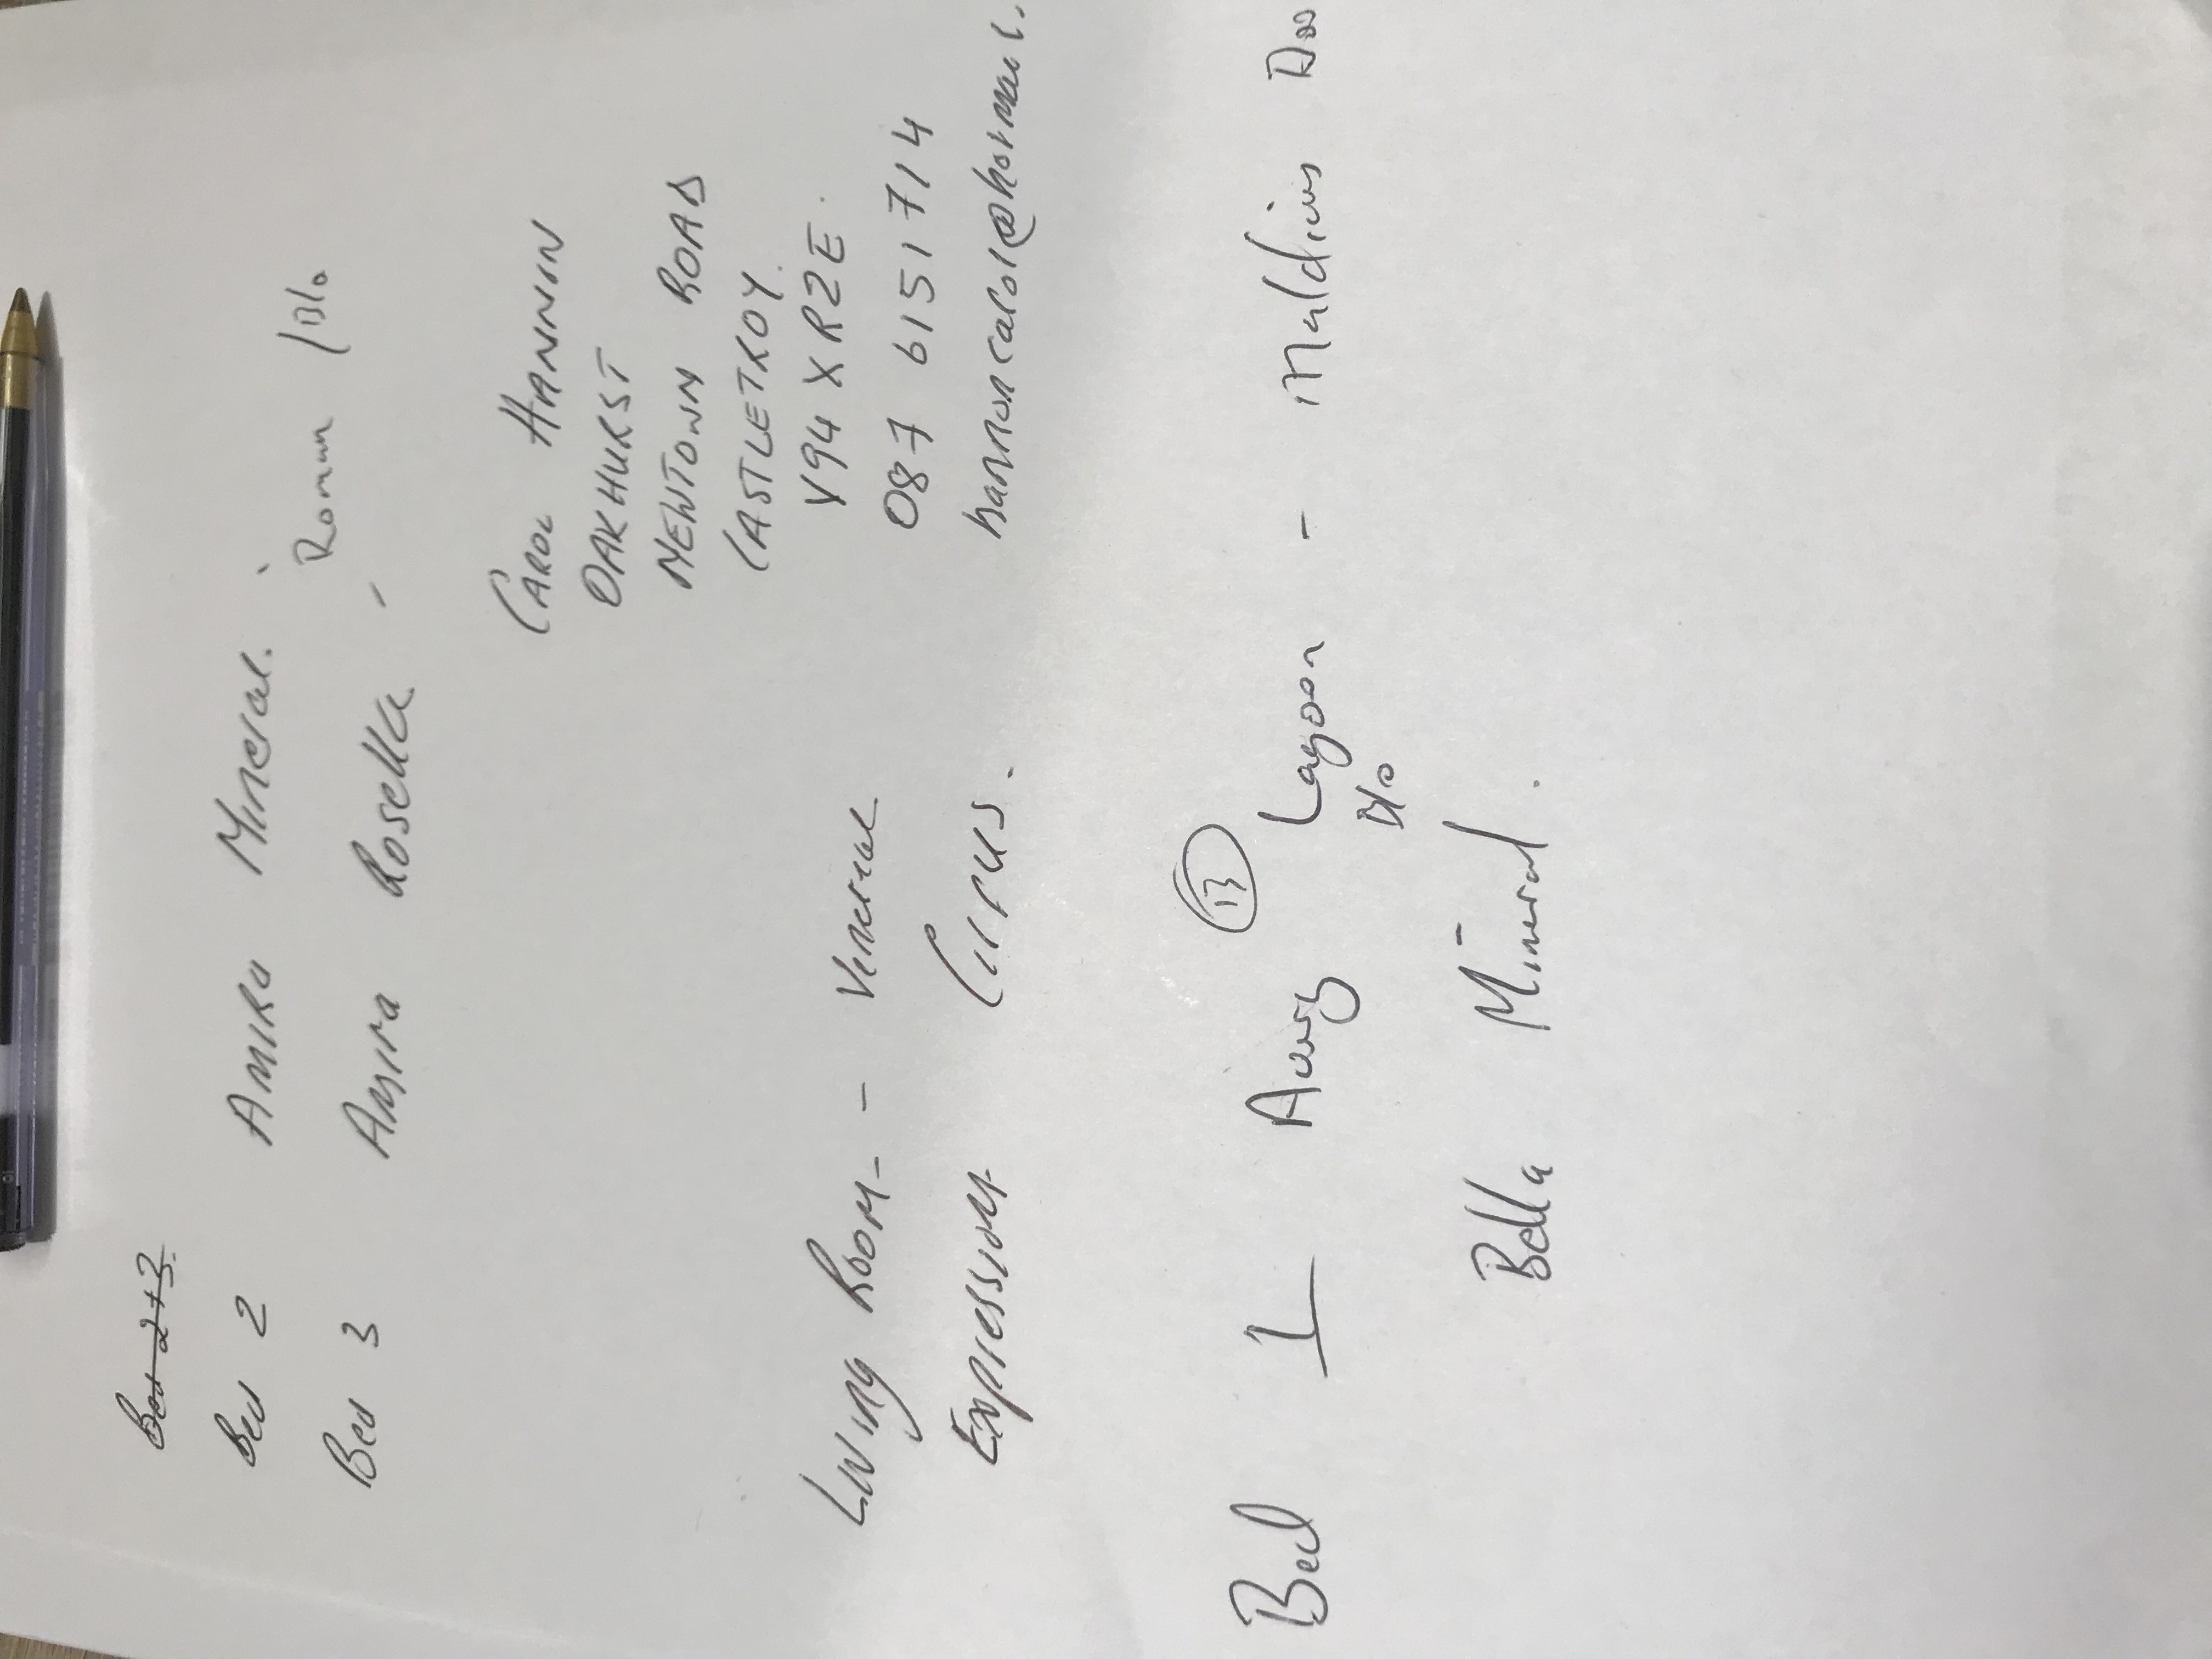 Bed 2+3.
Bed 2 Amira Mineral.
Roman / Blo
Bed 3 Amira Rosella -
CAROL HANNON
OAKHURST
NEWTOWN ROAD
CASTLETROY.
V94 XR2E.
087 6151714
hannoncarol@hotmail.
Living Room - - Venerae
Expression Circus.
Bed 1 Lagoon - Maldives
Blo
Bella Mineral.